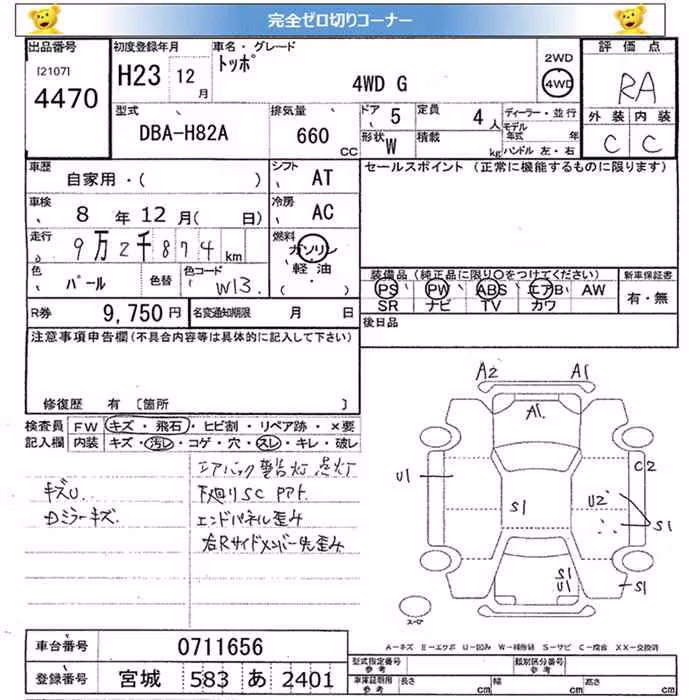 完全ゼロ切りコーナー
出品番号 初度登録年月 車名・グレード 評価点
[2107] 4470 H23 12月 トッポ 4WD G 2WD 4WD RA
型式 排気量 ドア 5 定員 4人 ディーラー・並行 外装 内装
DBA-H82A 660 CC 形状 W 積載 kg モデル年式 年 C C
ハンドル 左・右
車歴 自家用・( ) シフト AT セールスポイント (正常に機能するものに限ります)
車検 8年 12月( 日) 冷房 AC
走行 9万2千874km 燃料 ガソリン 軽油 ( ・ )
色 パール 色替 色コード W13. 装備品(純正品に限り○をつけてください) 新車保証書
PS PW ABS エアB AW 有・無
SR ナビ TV カワ
R券 9,750円 名変通知期限 月 日 後日品
注意事項申告欄(不具合内容等は具体的に記入して下さい)
修復歴 有 〔箇所 〕
検査員 FW キズ・飛石・ヒビ割・リペア跡・×要
記入欄 内装 キズ・汚レ・コゲ・穴・スレ・キレ・破レ
エアバッグ警告灯点灯
キズU. 下廻りSC Pアト.
Dミラーキズ. エンドパネル歪み
右Rサイドメンバー先歪み
A2 A1
A1
U1 C2
S1 U2
S1
S1 U1 S1
スペア
A=キズ E=エクボ U=凹み W=補修跡 S=サビ C=腐食 XX=交換済
車台番号 0711656 型式指定番号 参考 類別区分番号 参考
登録番号 宮城 583 あ 2401 車庫証明用 参考 長さ cm 幅 cm 高さ cm